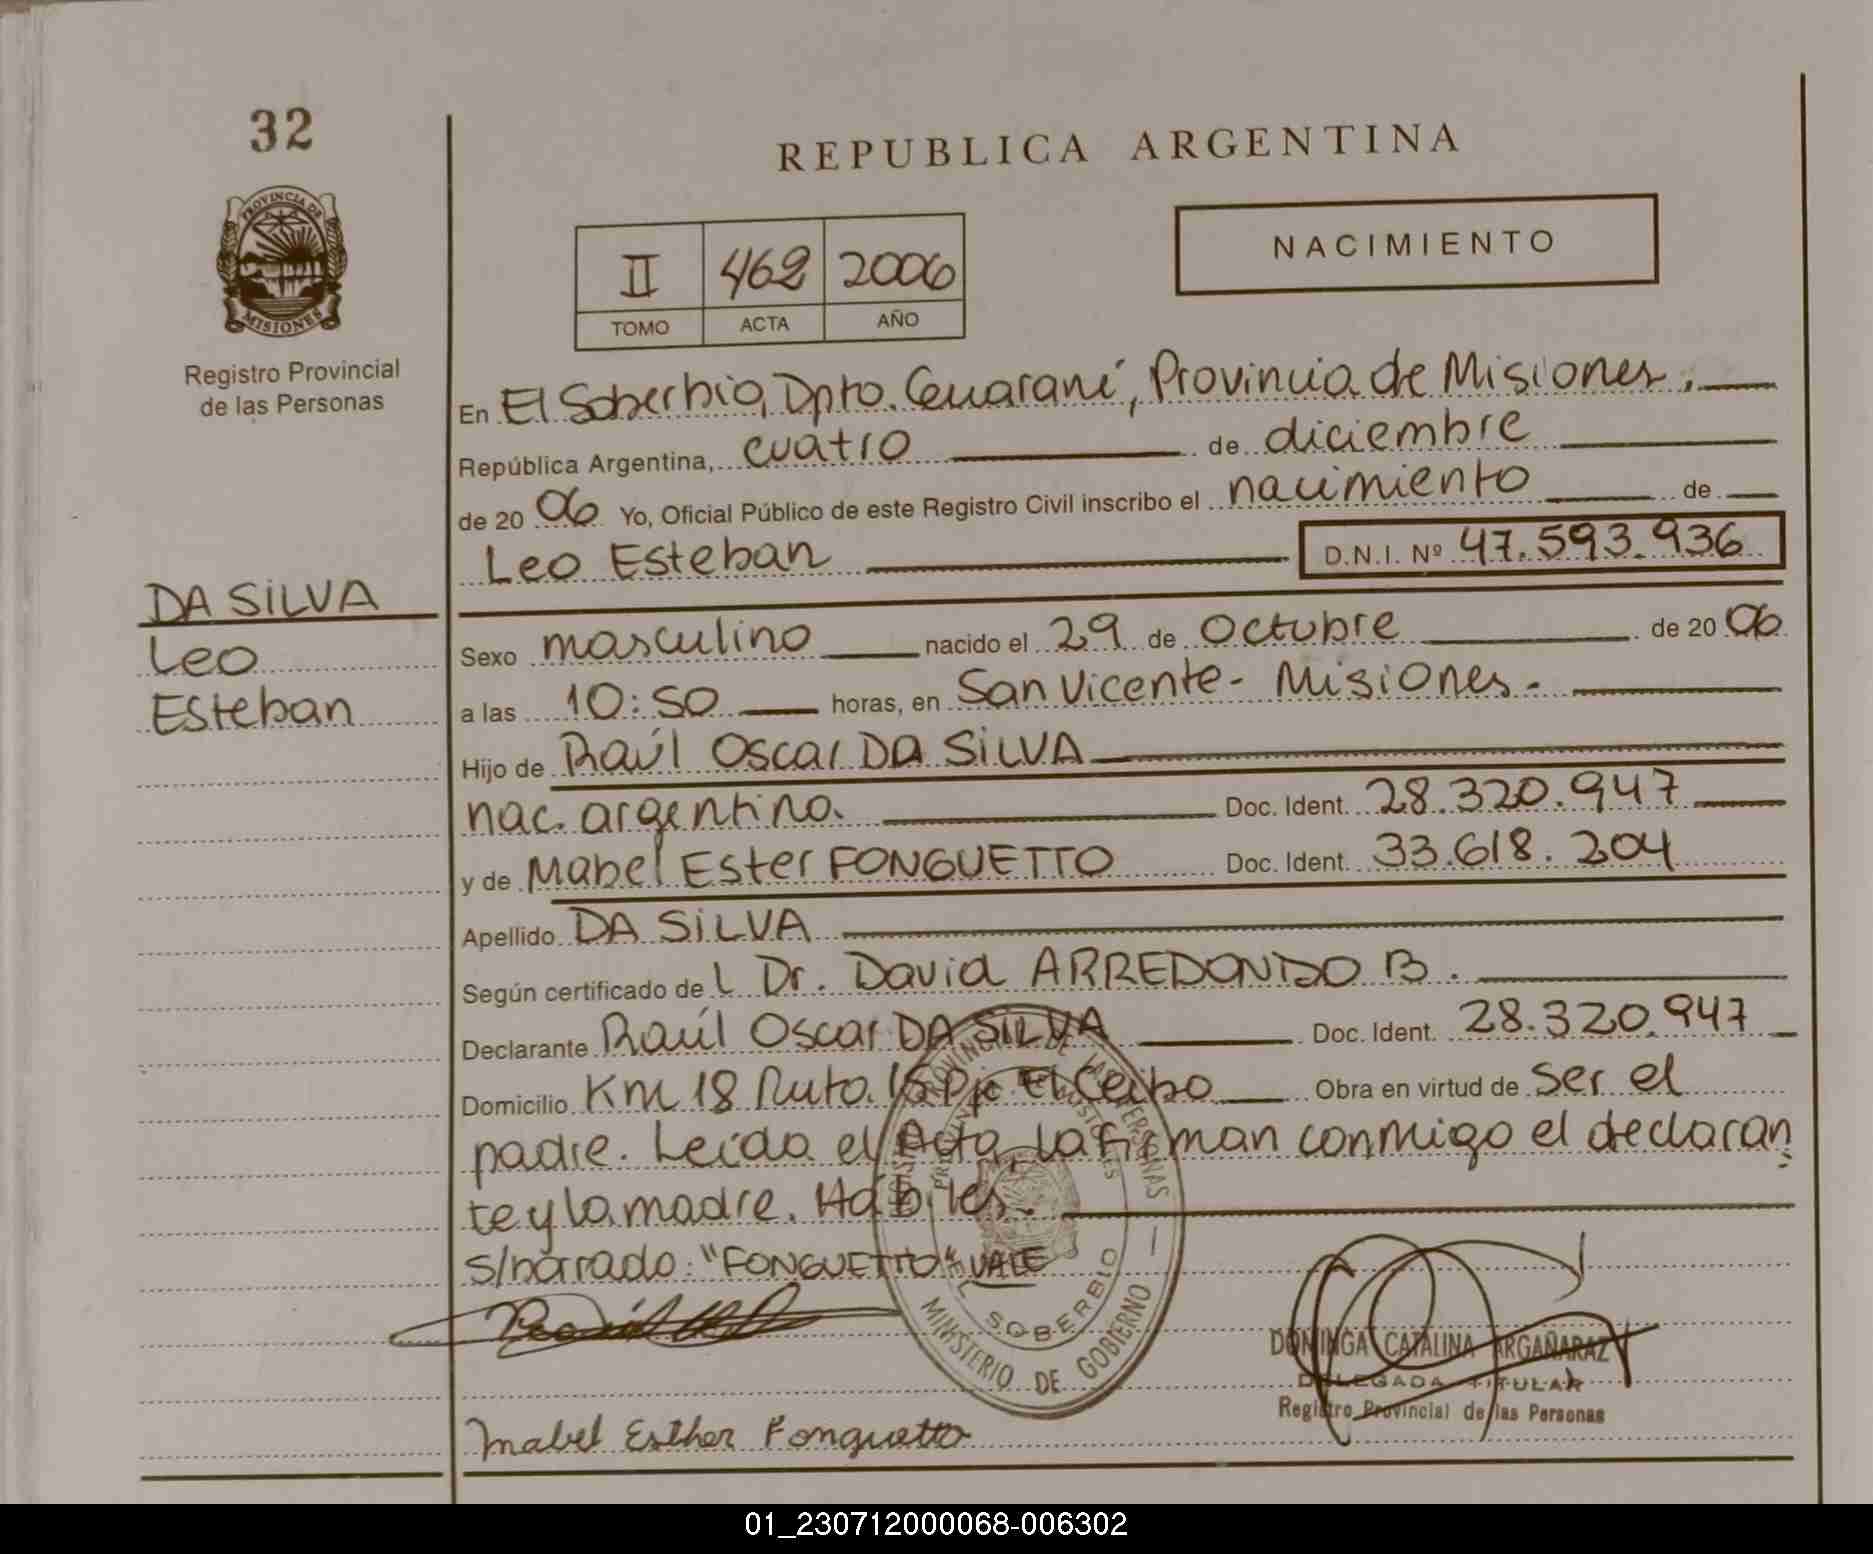 32
REPUBLICA ARGENTINA
PROVINCIA DE
MISIONES
NACIMIENTO
II 462 2006
TOMO ACTA AÑO
Registro Provincial
de las Personas
En El Soberbio, Dpto. Guaraní, Provincia de Misiones.
República Argentina, cuatro de diciembre
de 20 06 Yo, Oficial Público de este Registro Civil inscribo el nacimiento de
Leo Esteban D.N.I. Nº 47.593.936
DA SILVA
Leo
Esteban
Sexo masculino nacido el 29 de Octubre de 20 06
a las 10:50 horas, en San Vicente - Misiones.-
Hijo de Raúl Oscar DA SILVA
nac. argentino. Doc. Ident. 28.320.947
y de Mabel Ester FONGUETTO Doc. Ident. 33.618.204
Apellido DA SILVA
Según certificado de l Dr. David ARREDONDO B.
Declarante Raúl Oscar DA SILVA Doc. Ident. 28.320.947
Domicilio Km 18 Ruta 15 Pje El Ceibo Obra en virtud de ser el
padre. Leída el Acta, la firman conmigo el declaran
te y la madre. Hábiles.
s/borrado: "FONGUETTO" VALE
EL SOBERBIO
MINISTERIO DE GOBIERNO
DOMINGA CATALINA ARGAÑARAZ
DELEGADA TITULAR
Registro Provincial de las Personas
Mabel Esther Fonguetto
01_230712000068-006302